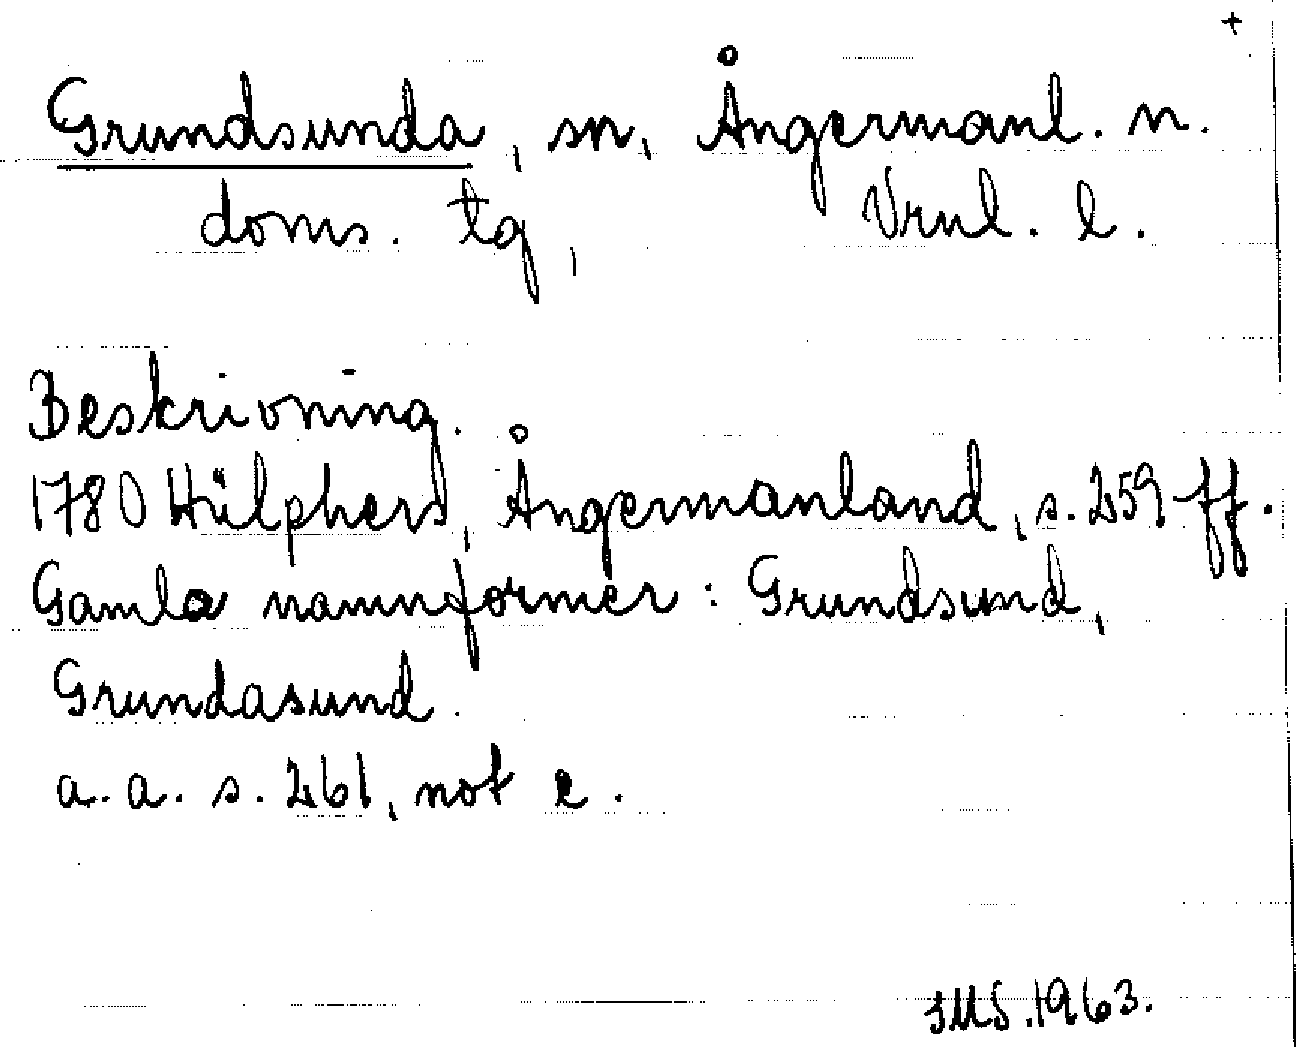 +
Grundsunda, sn, Ångermanl. n.
doms. tg, Vrnl. l.
Beskrivning.
1780 Hülphers, Ångermanland, s. 259 ff.
Gamla namnformer: Grundsund,
Grundasund.
a.a. s. 261, not e.
IMS. 1963.